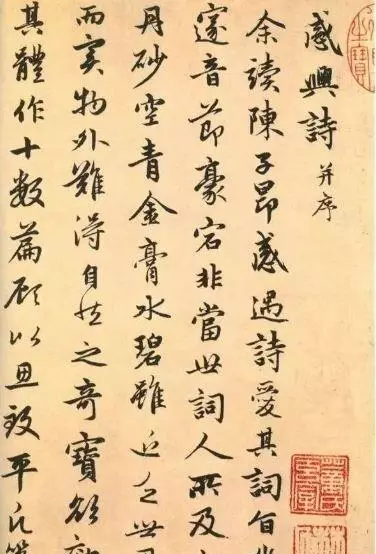 感興詩 并序
余讀陳子昂感遇詩愛其詞旨
邃音節豪宕非當世詞人所及
丹砂空青金膏水碧雖近乏世
而實物外難得自然之奇寶欲
其體作十數篇顧以思致平凡